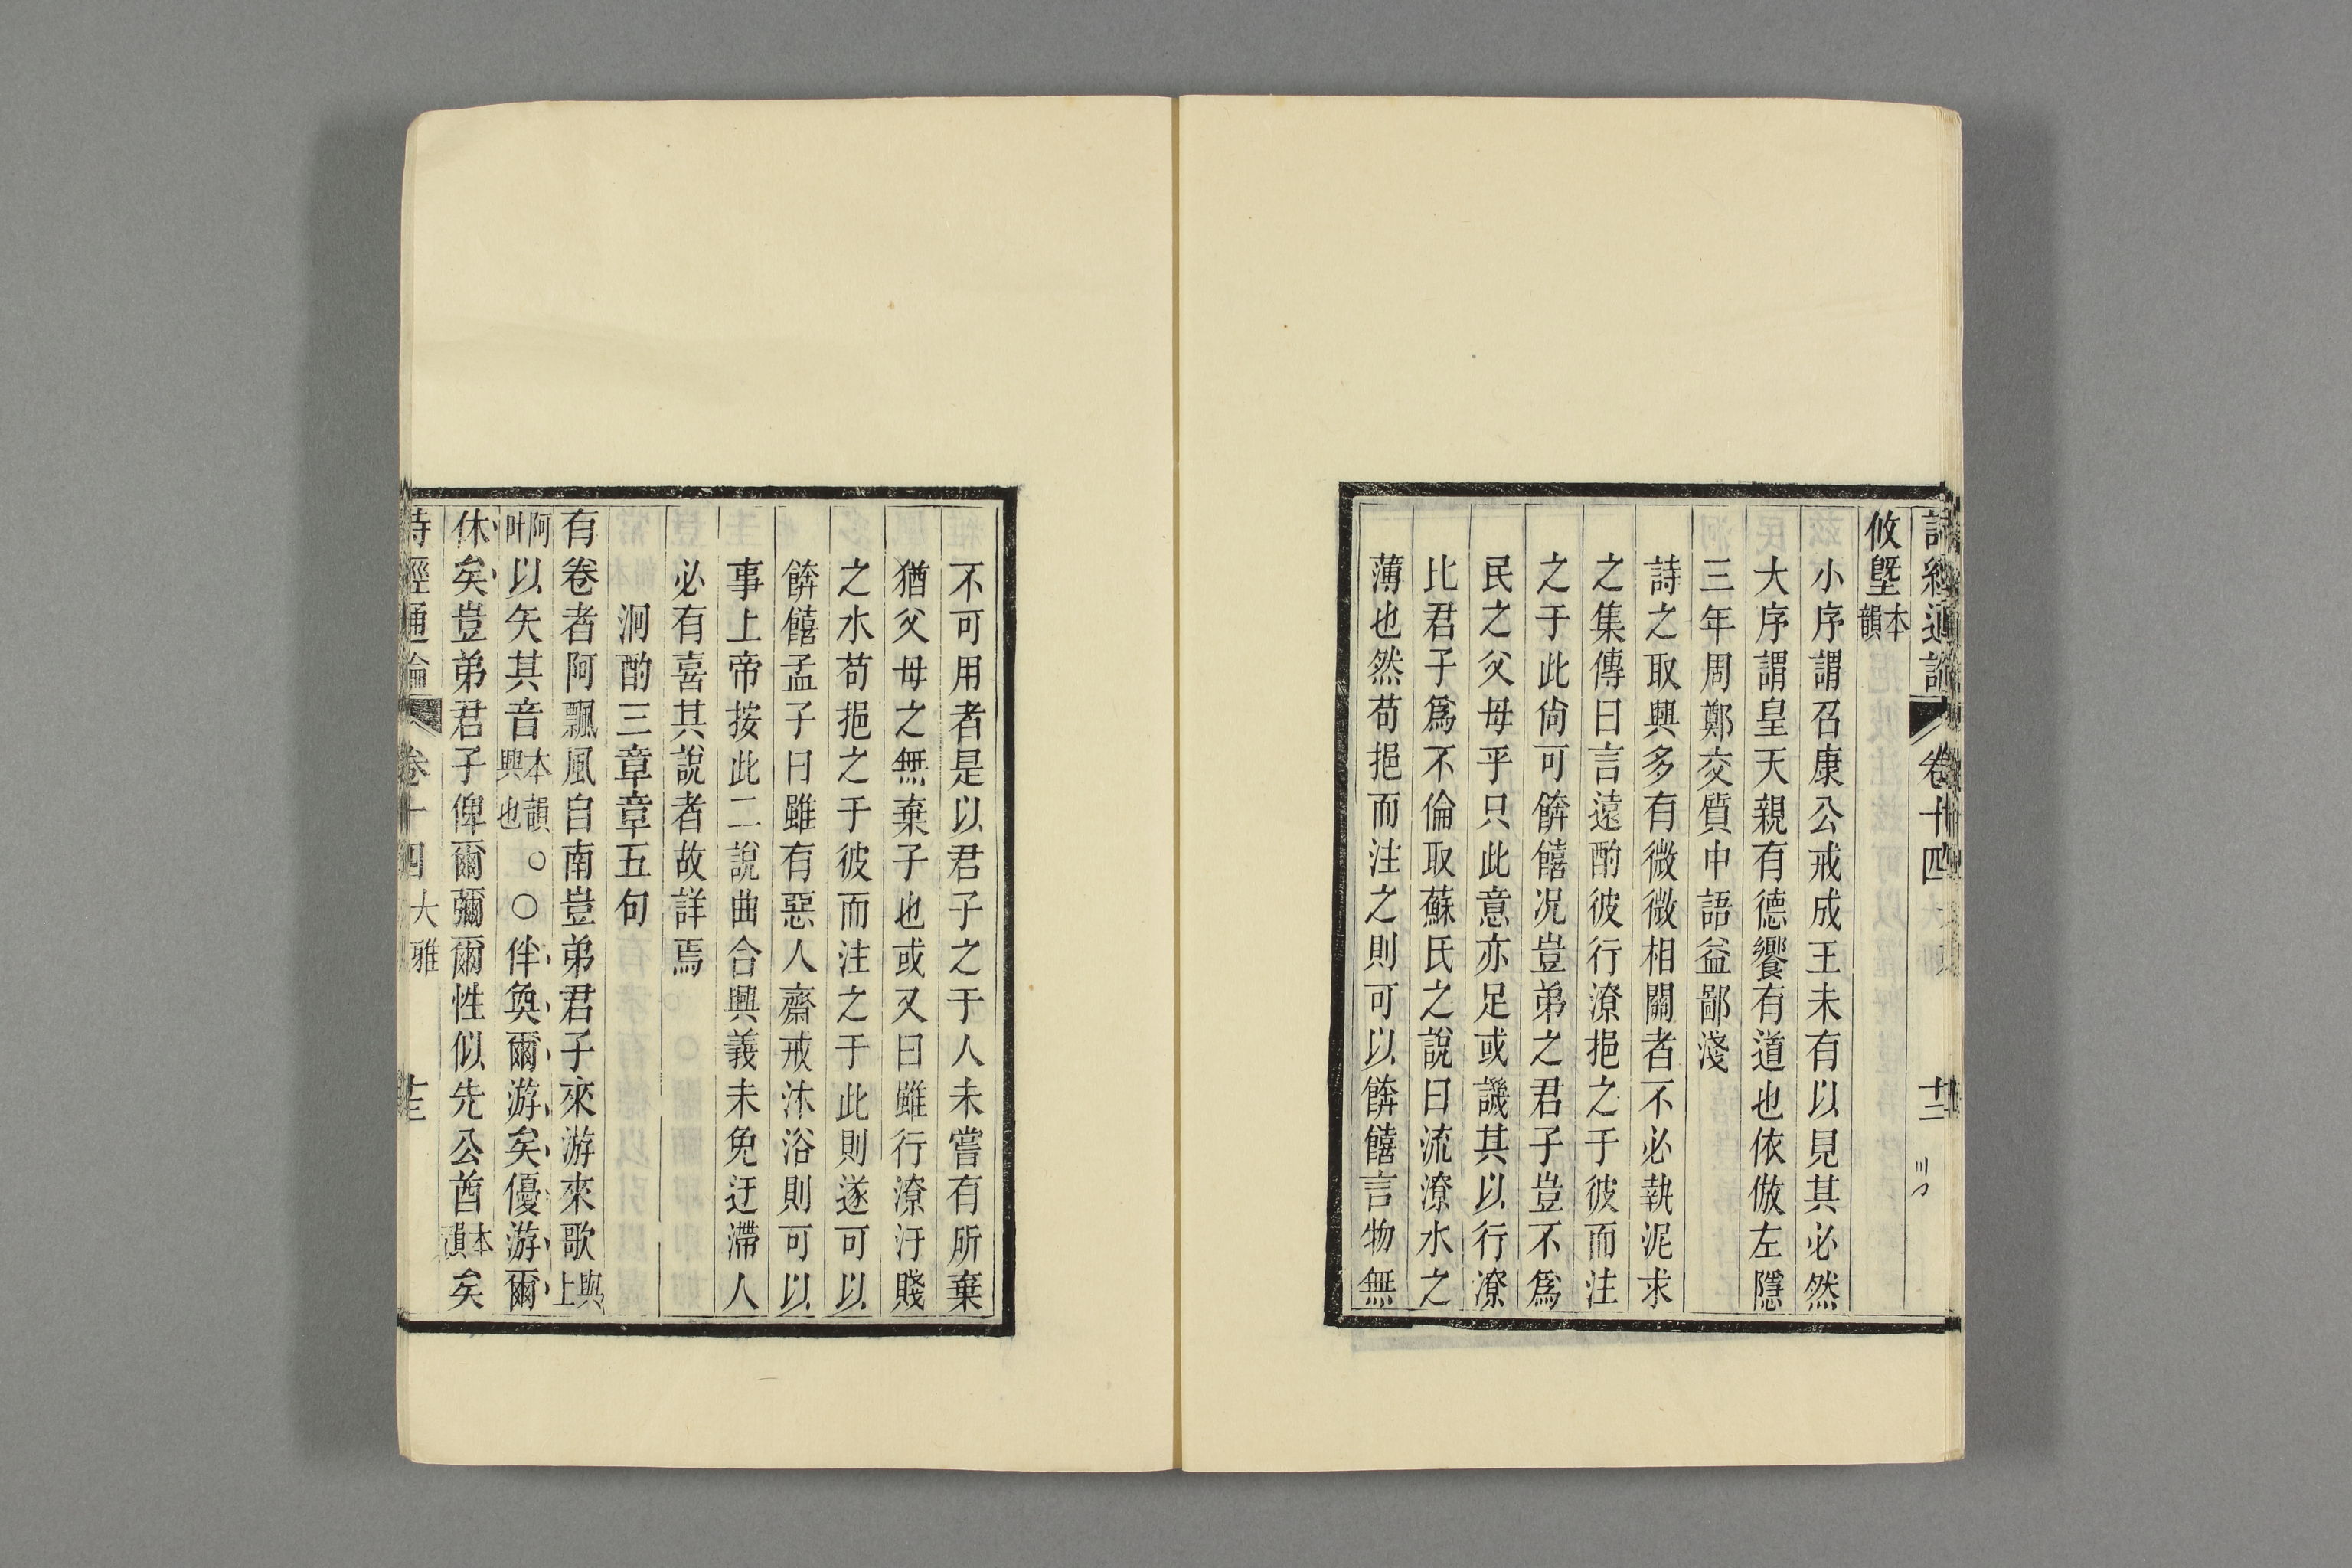 詩經通論 卷十四 十二
攸塈本韻
小序謂召康公戒成王未有以見其必然
大序謂皇天親有德饗有道也依倣左隱
三年周鄭交質中語益鄙淺
詩之取興多有微微相關者不必執泥求
之集傳曰言遠酌彼行潦挹之于彼而注
之于此尙可餴饎况豈弟之君子豈不爲
民之父母乎只此意亦足或譏其以行潦
比君子爲不倫取蘇氏之說曰流潦水之
薄也然苟挹而注之則可以餴饎言物無
不可用者是以君子之于人未嘗有所棄
猶父母之無棄子也或又曰雖行潦汙賤
之水苟挹之于彼而注之于此則遂可以
餴饎孟子曰雖有惡人齋戒沐浴則可以
事上帝按此二說曲合興義未免迂滯人
必有喜其說者故詳焉
泂酌三章章五句
有卷者阿飄風自南豈弟君子來游來歌與上
阿叶以矢其音本韻興也○○伴奐爾游矣優游爾
休矣豈弟君子俾爾彌爾性似先公酋本韻矣
詩經通論 卷十四 大雅 十三